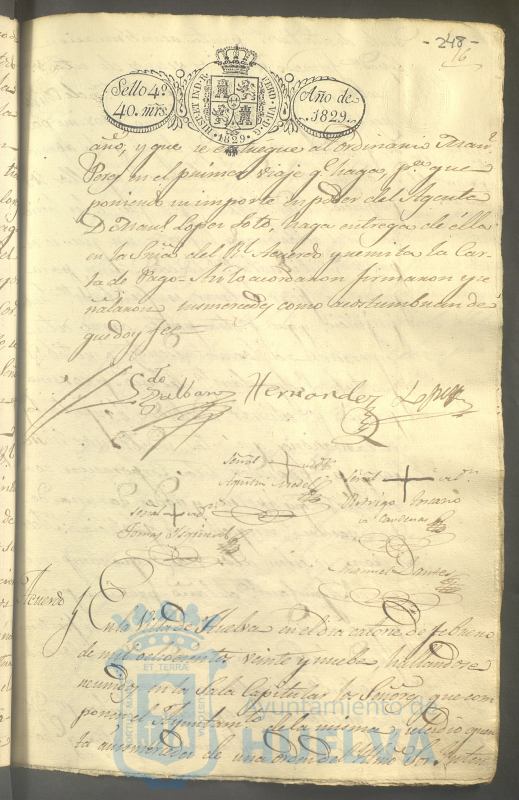 - 248 -
16
Sello 4º
40. mrs.
HISP. ET IND. R.
FERD. VII. D. G.
1829
Año de
1829.
año, y que se entregue al ordinario Man.
Perez en el primer viaje q.e haga, p.a que
poniendo su importe en poder del Agente
D. Man.l Lopez Soto, haga entrega de ella
en la Sria del R.l Acuerdo y remita la Car-
ta de Pago. Asi lo acordaron firmaron y se-
ñalaron sus mercedes como acostumbran de
que doy fee
Hernandez Lopez
Señal + de
Agustin
Señal +
Rodrigo
Cardenas
Señal + de
Tomas
Manuel
Acuerdo
En la Villa de Huelva en el dia catorce de febrero
de mil ochocientos veinte y nueve, hallandose
reunidos en la Sala Capitular los Señores que com-
ponen el Ayuntam.to de la misma, se dio cuen-
ta de una orden del
Ayuntamiento de
HUELVA